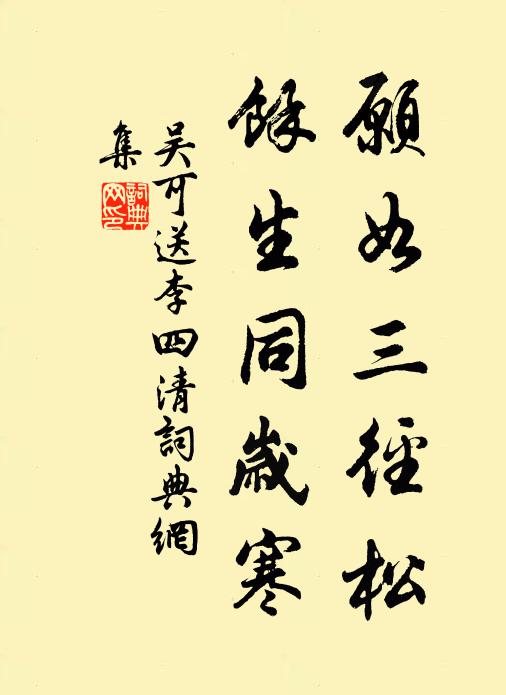 願如三徑松
餘生同歲寒
吴可送李四清詞典網
集
詞典網印